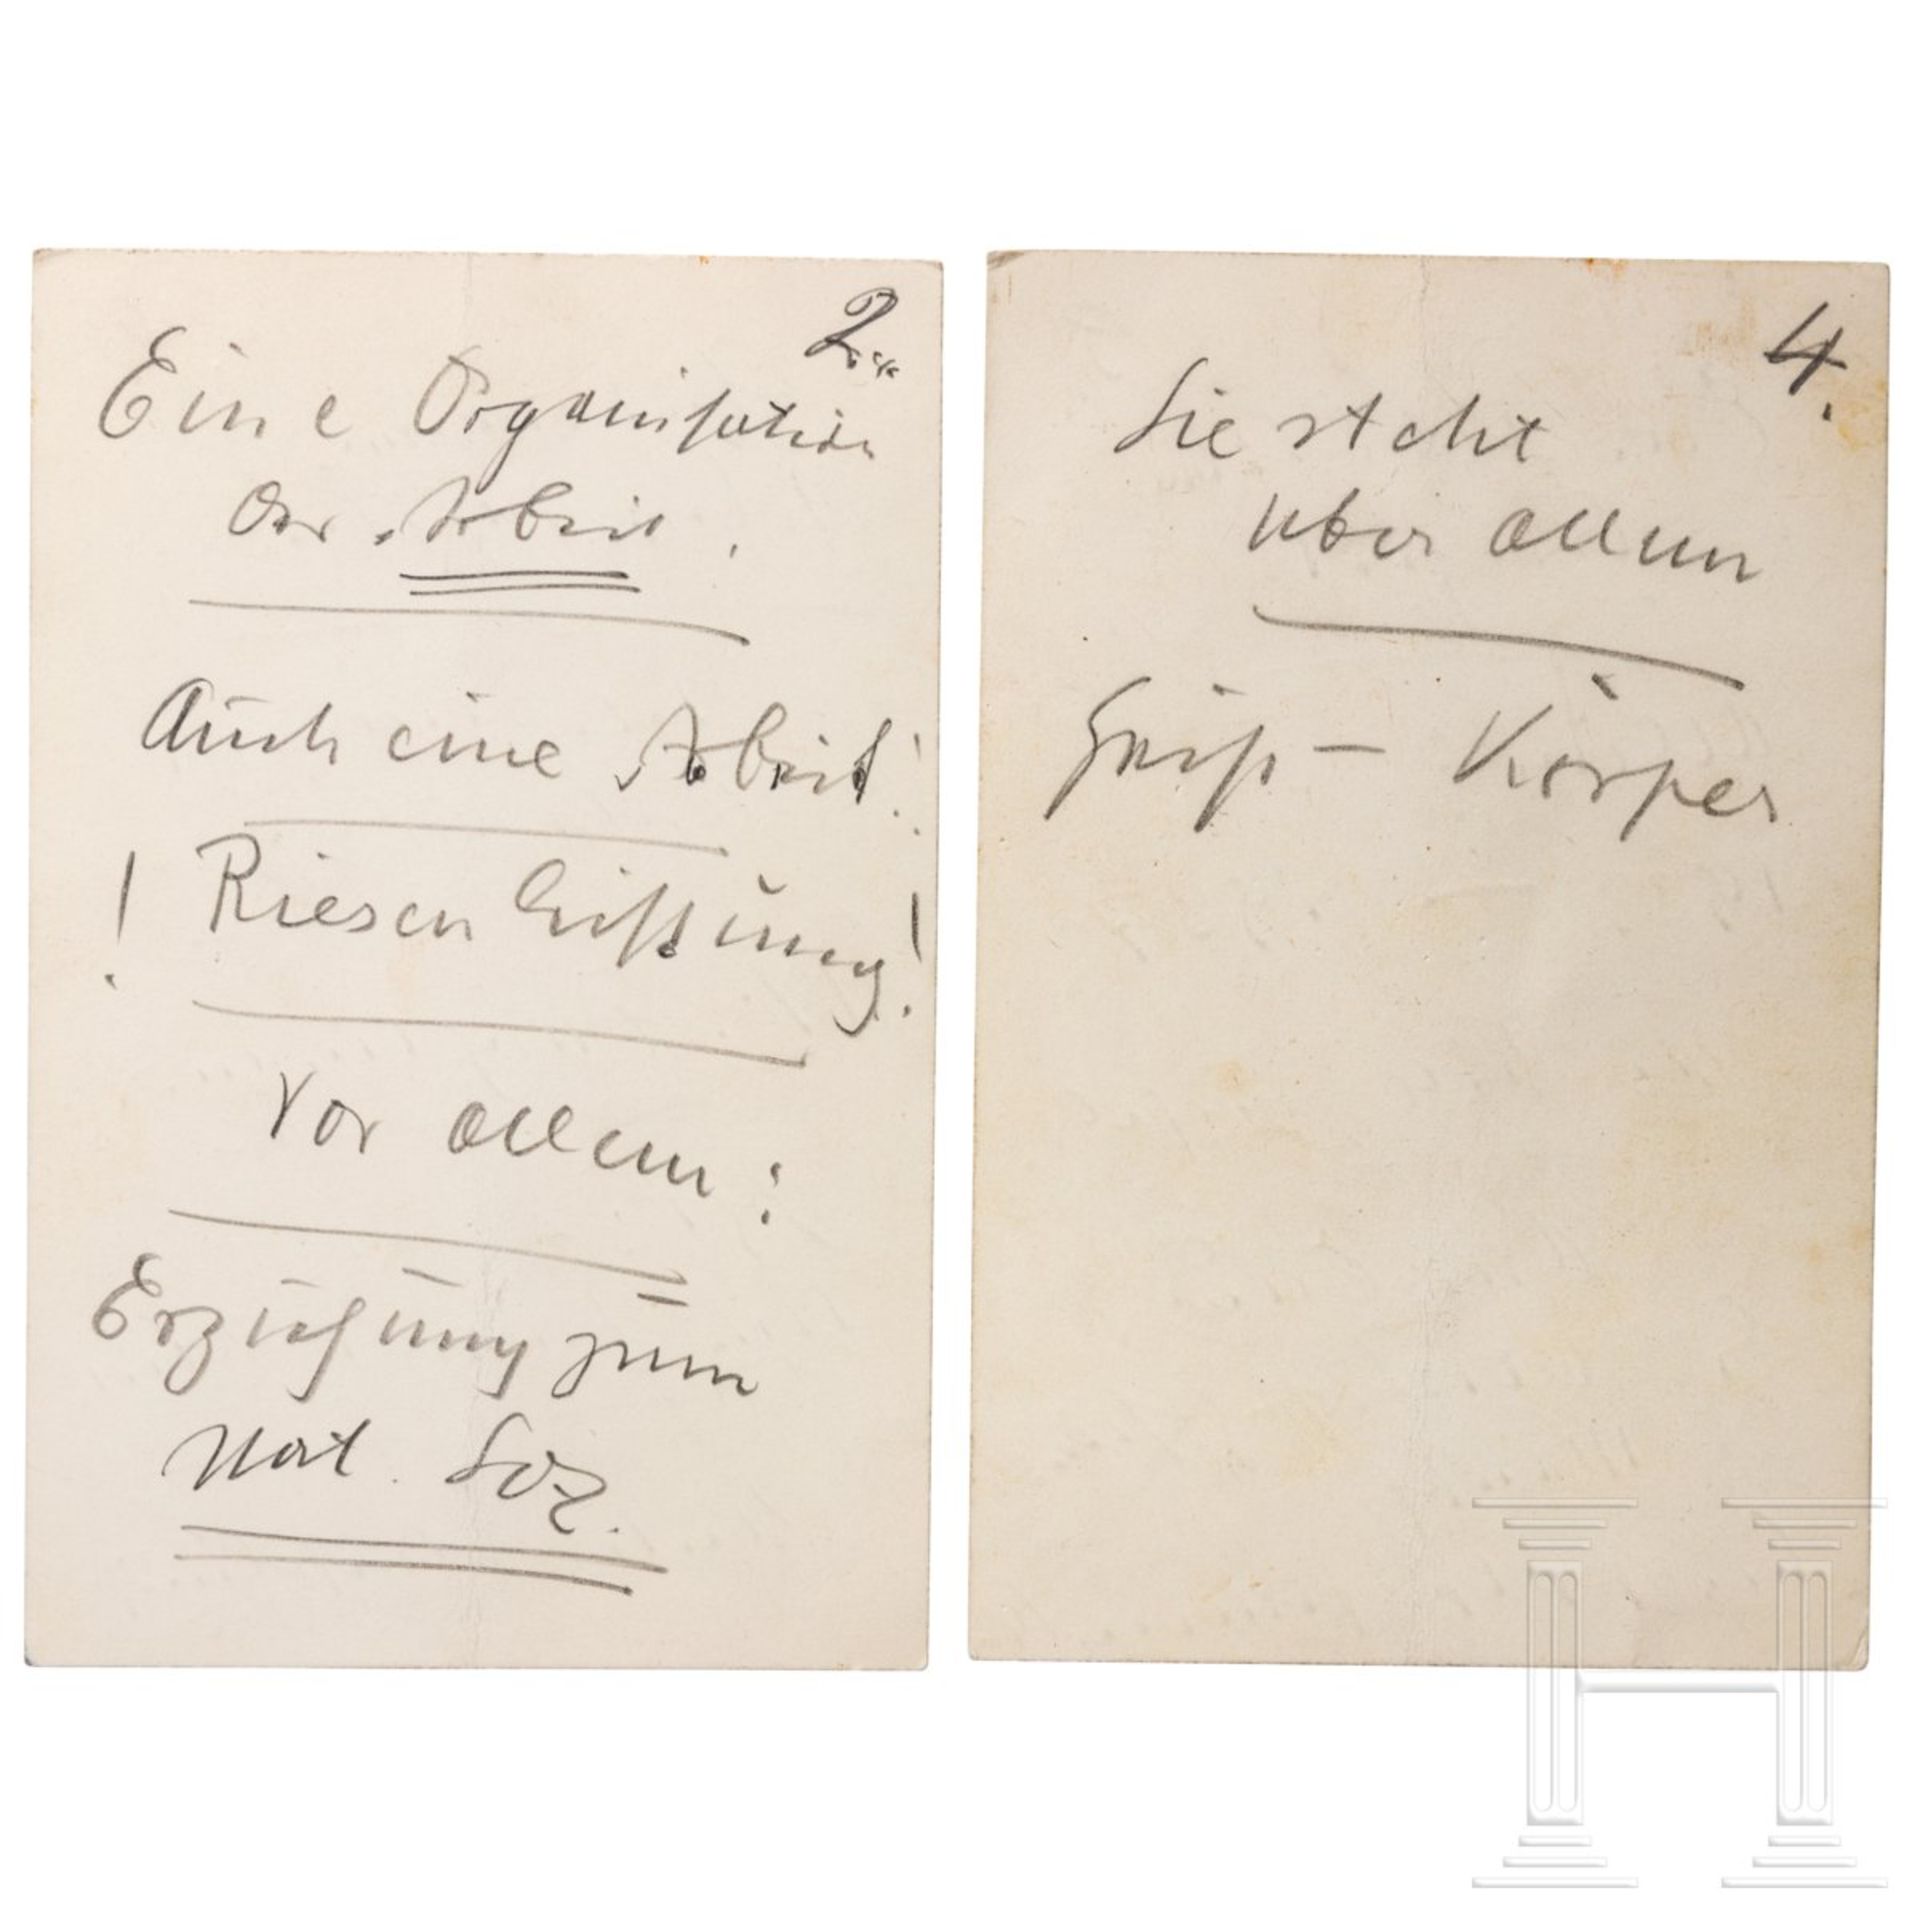 2.
Eine Organisation
der Arbeit.
Auch eine Arbeit!
! Riesenleistung!
Vor allem:
Erziehung zum
Nat. Soz.
4.
Sie steht
über allem
Geist – Körper